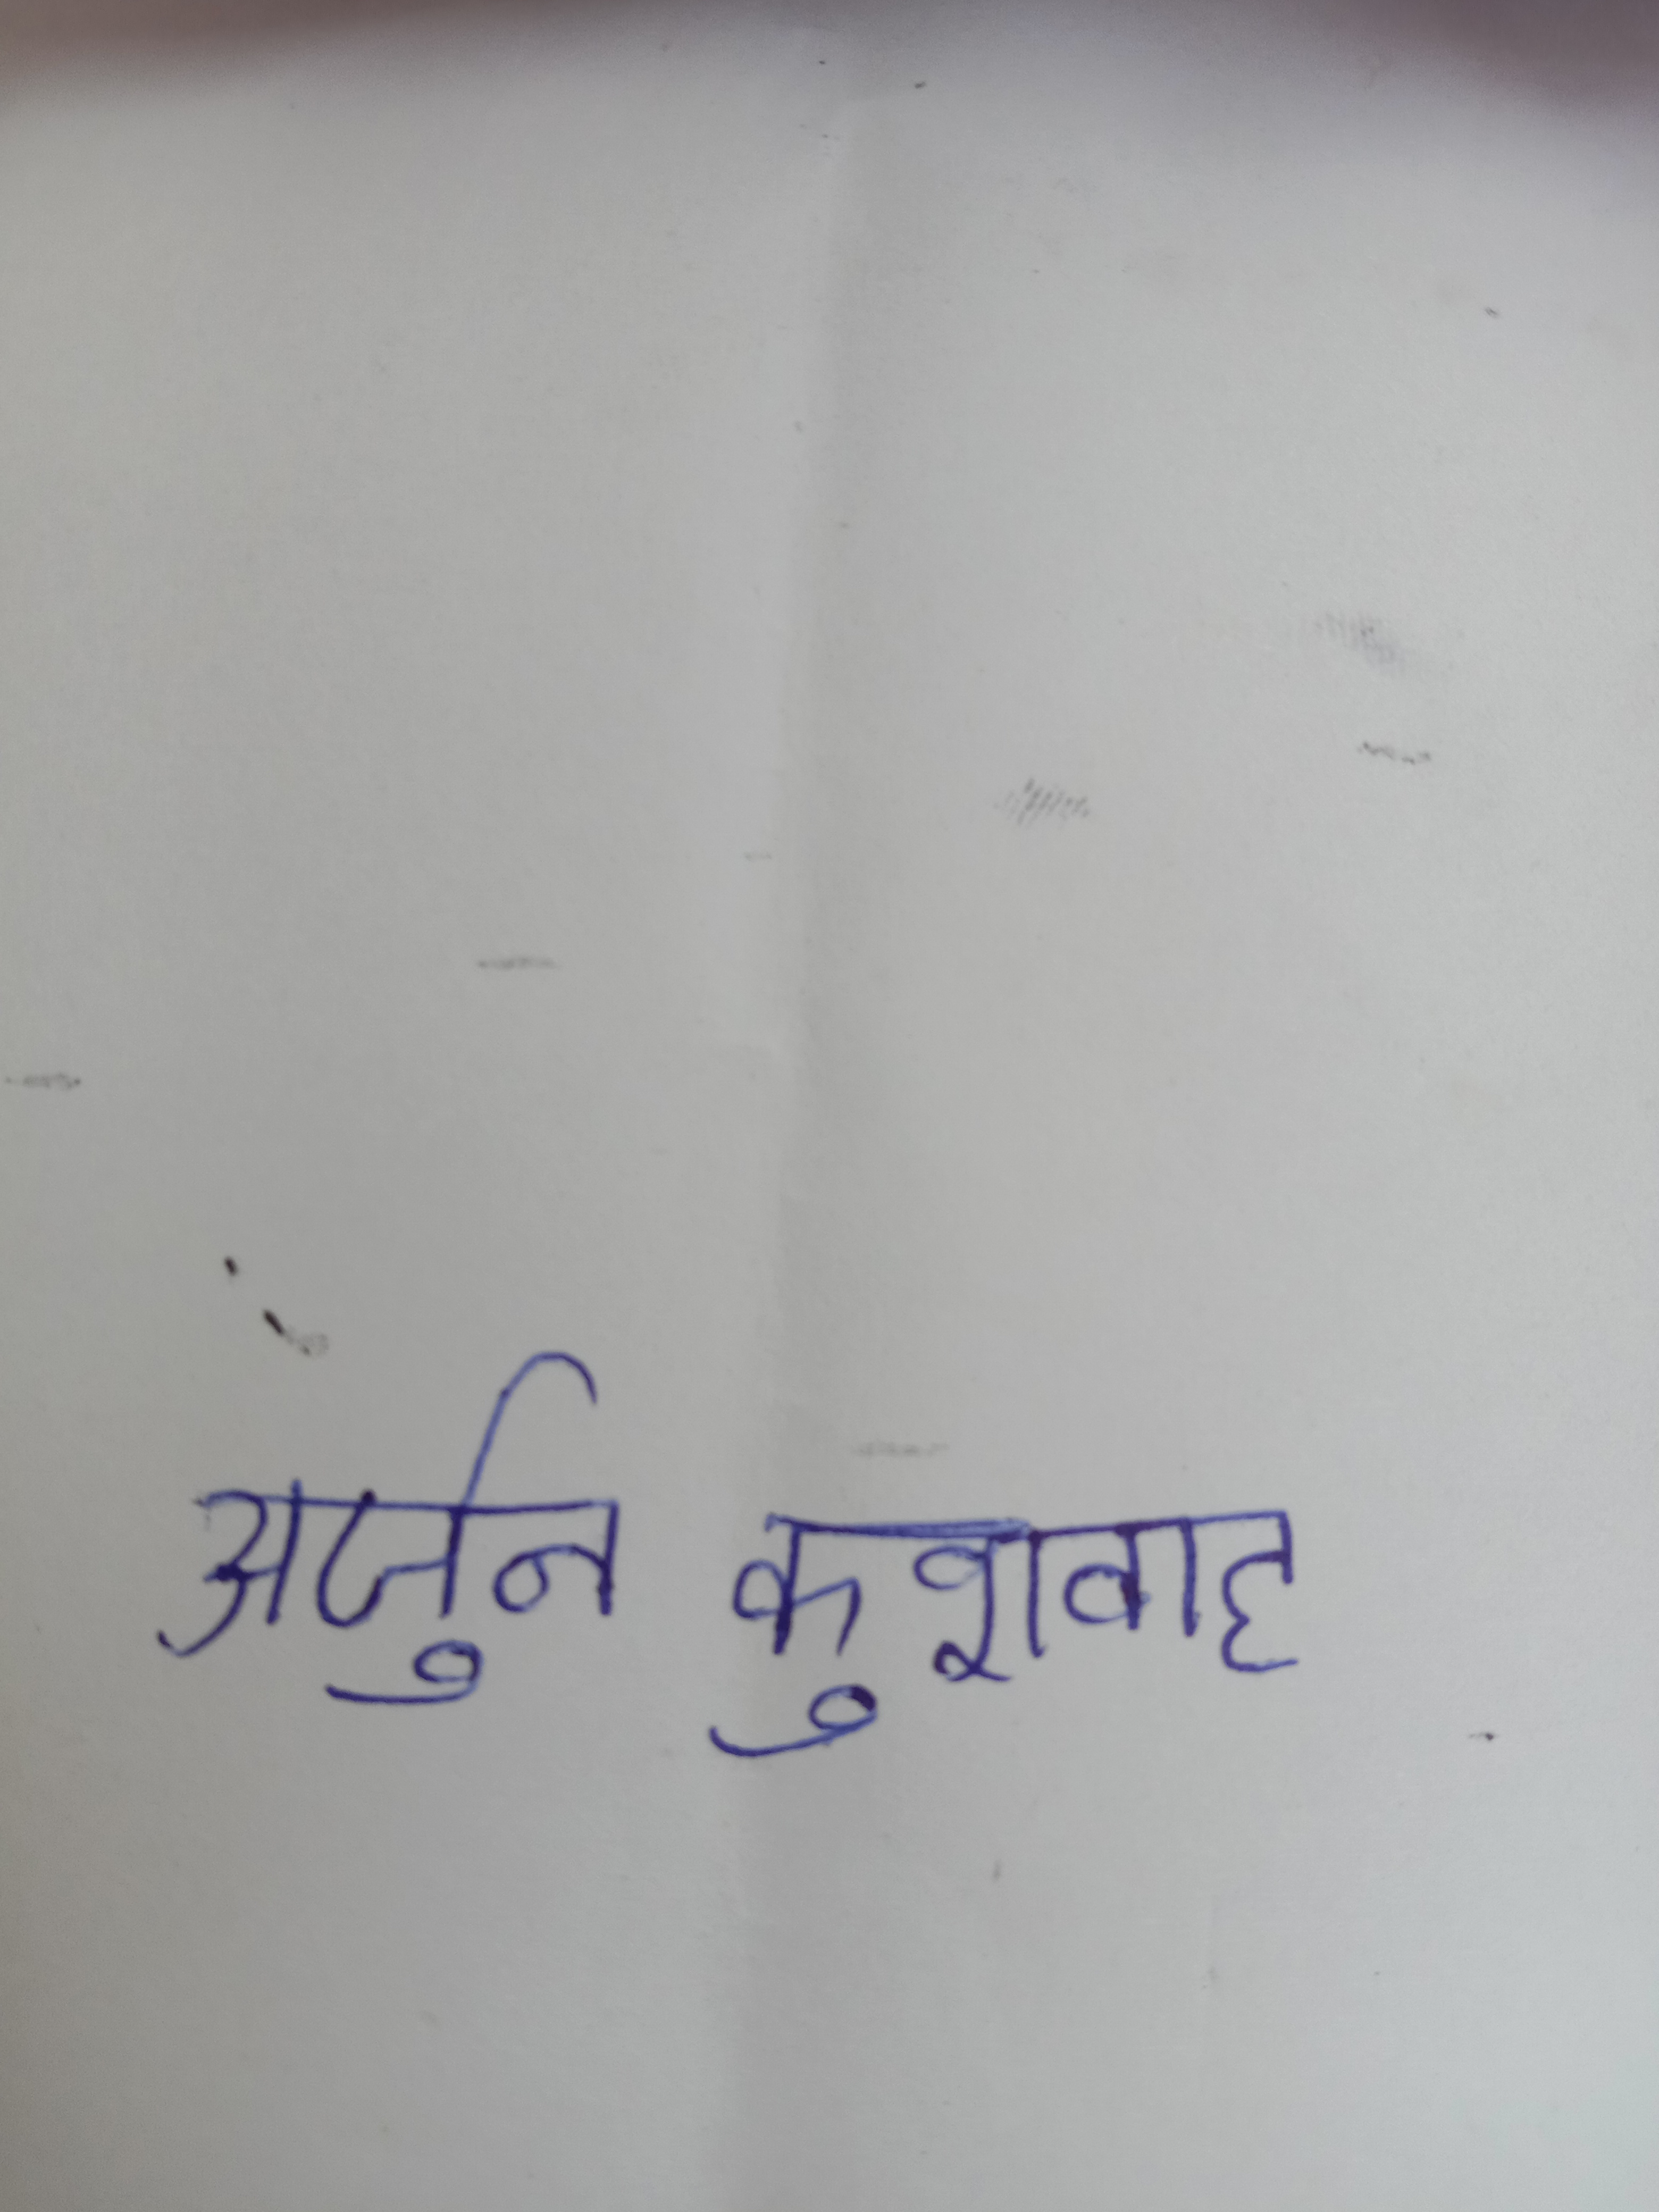 अर्जुन कुशवाह